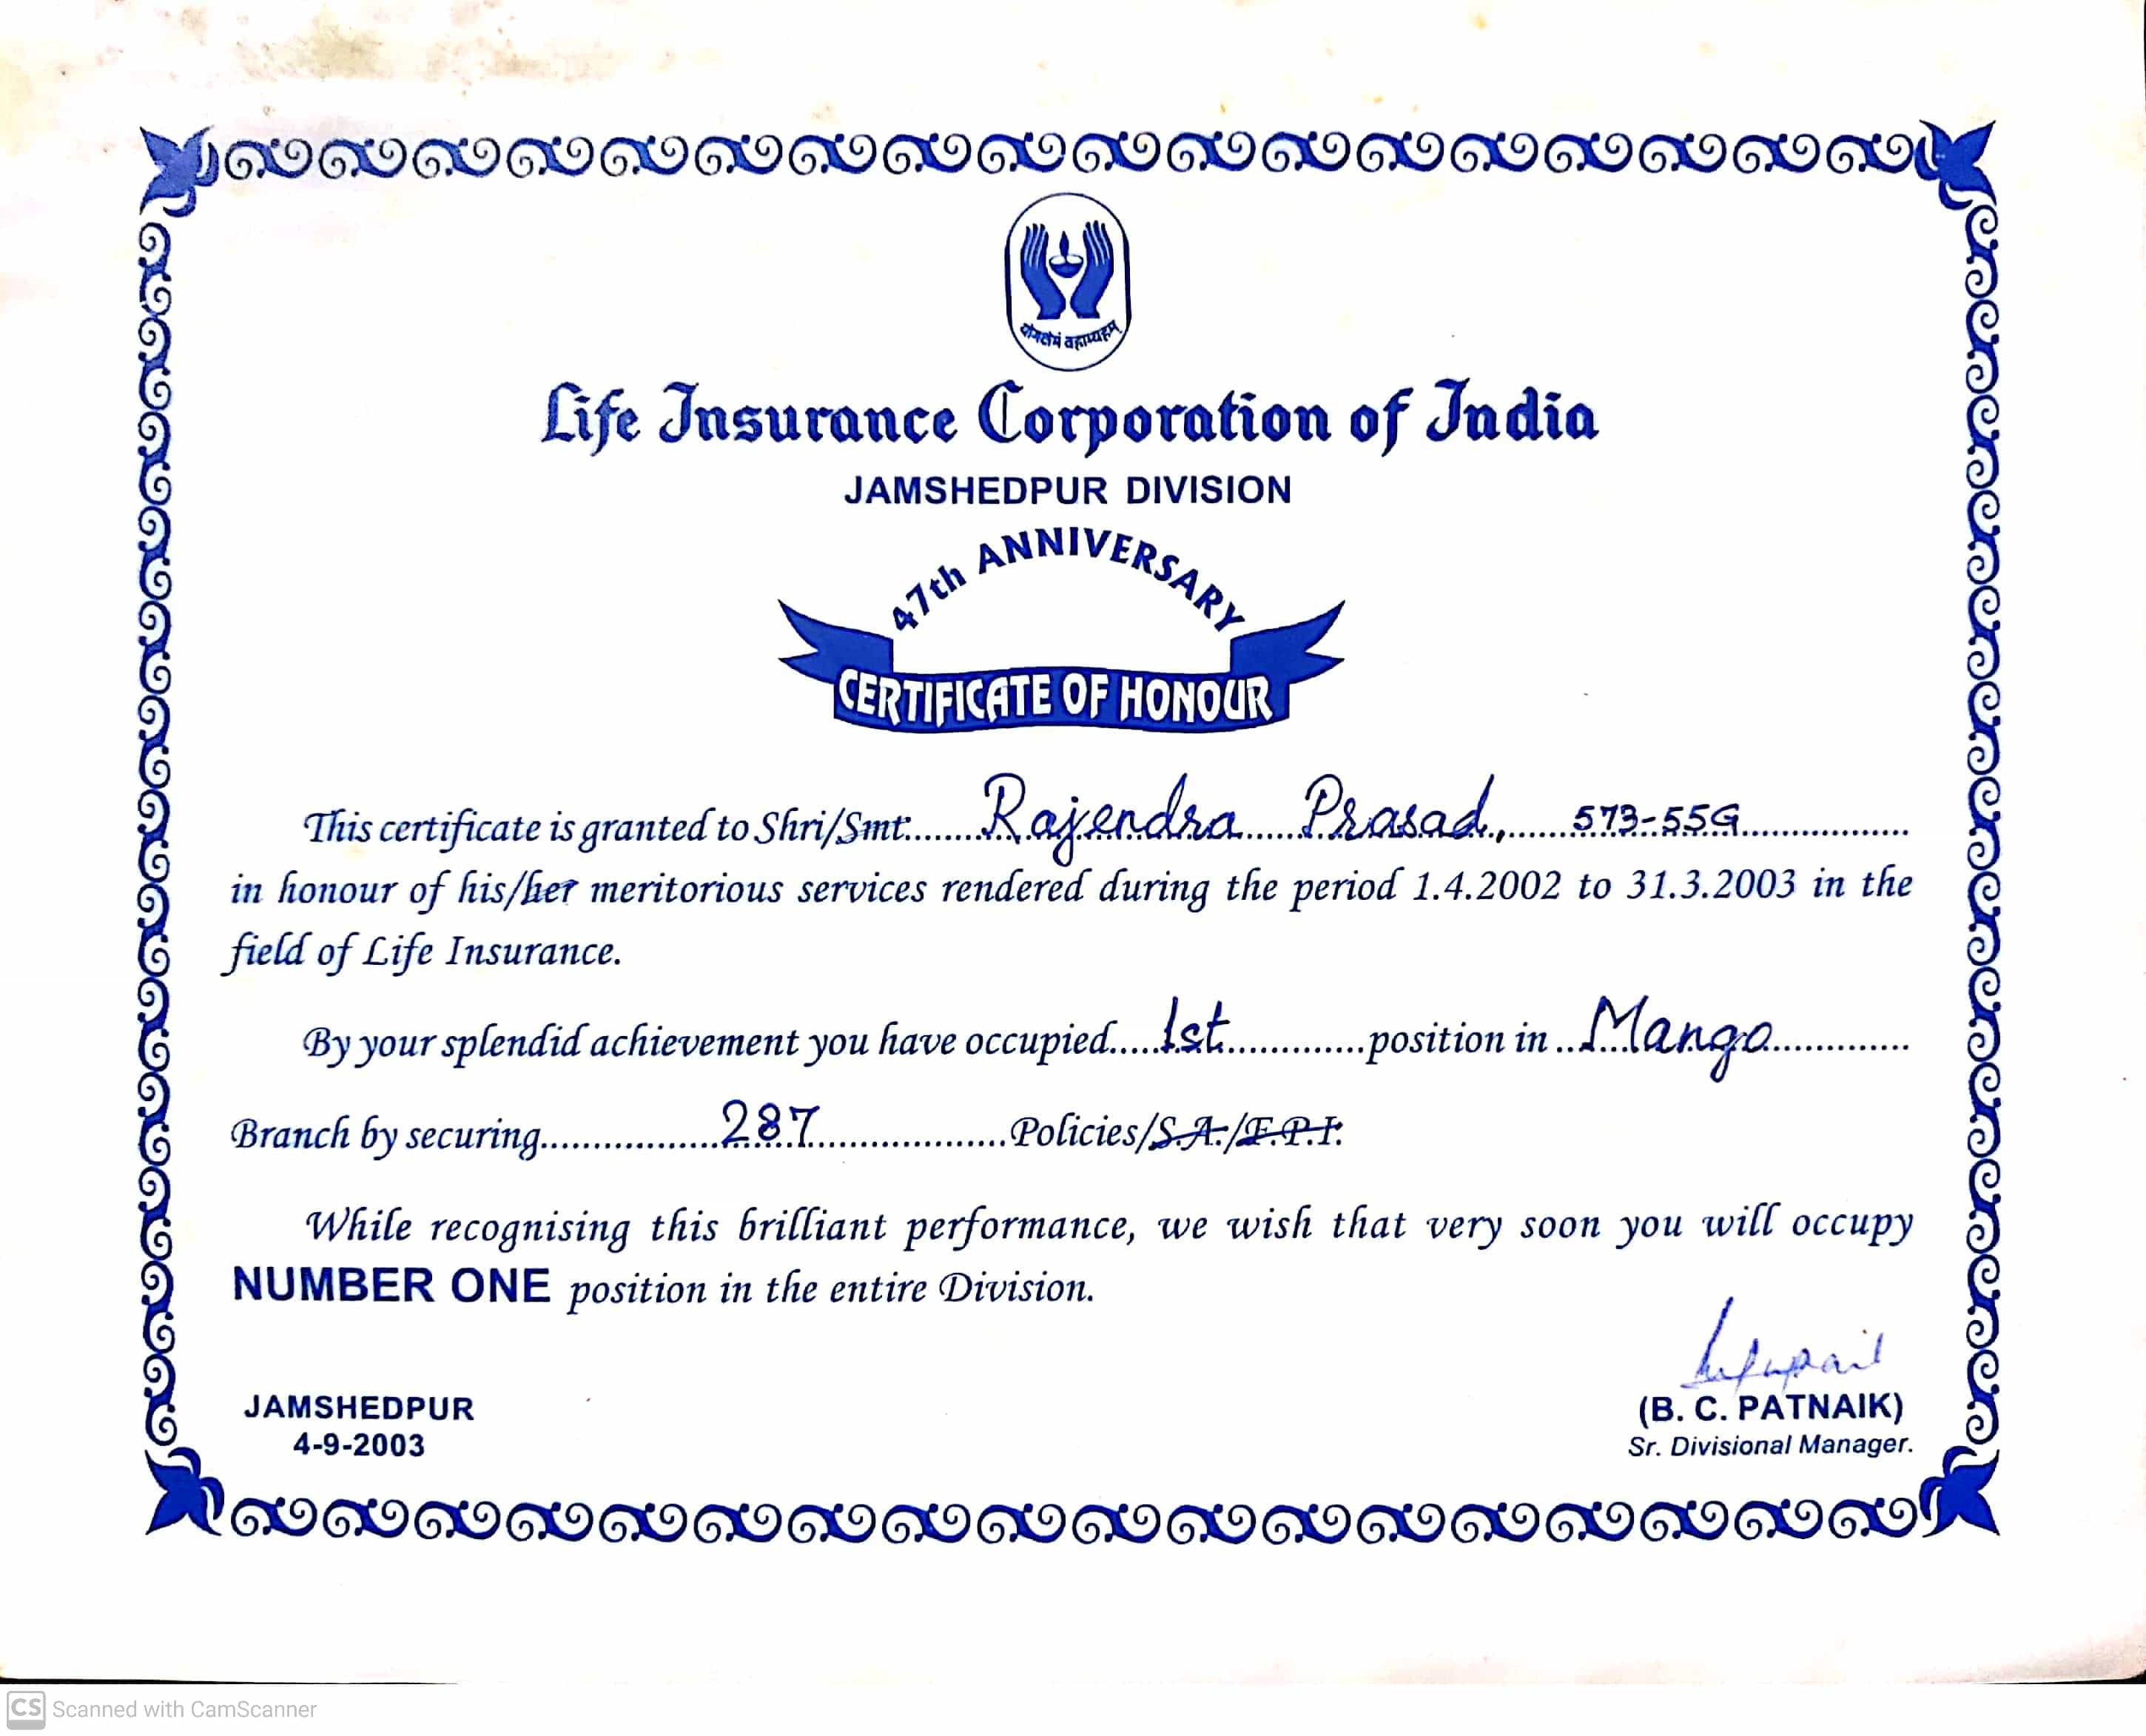 योगक्षेमं वहाम्यहम्
Life Insurance Corporation of India
JAMSHEDPUR DIVISION
47th ANNIVERSARY
CERTIFICATE OF HONOUR
This certificate is granted to Shri/Smt:.......Rajendra Prasad, 573-55G
in honour of his/her meritorious services rendered during the period 1.4.2002 to 31.3.2003 in the
field of Life Insurance.
By your splendid achievement you have occupied.....1st..............position in ...Mango..............
Branch by securing..................287....................Policies/S.A./F.P.I.
While recognising this brilliant performance, we wish that very soon you will occupy
NUMBER ONE position in the entire Division.
JAMSHEDPUR
4-9-2003
(B. C. PATNAIK)
Sr. Divisional Manager.
CS Scanned with CamScanner